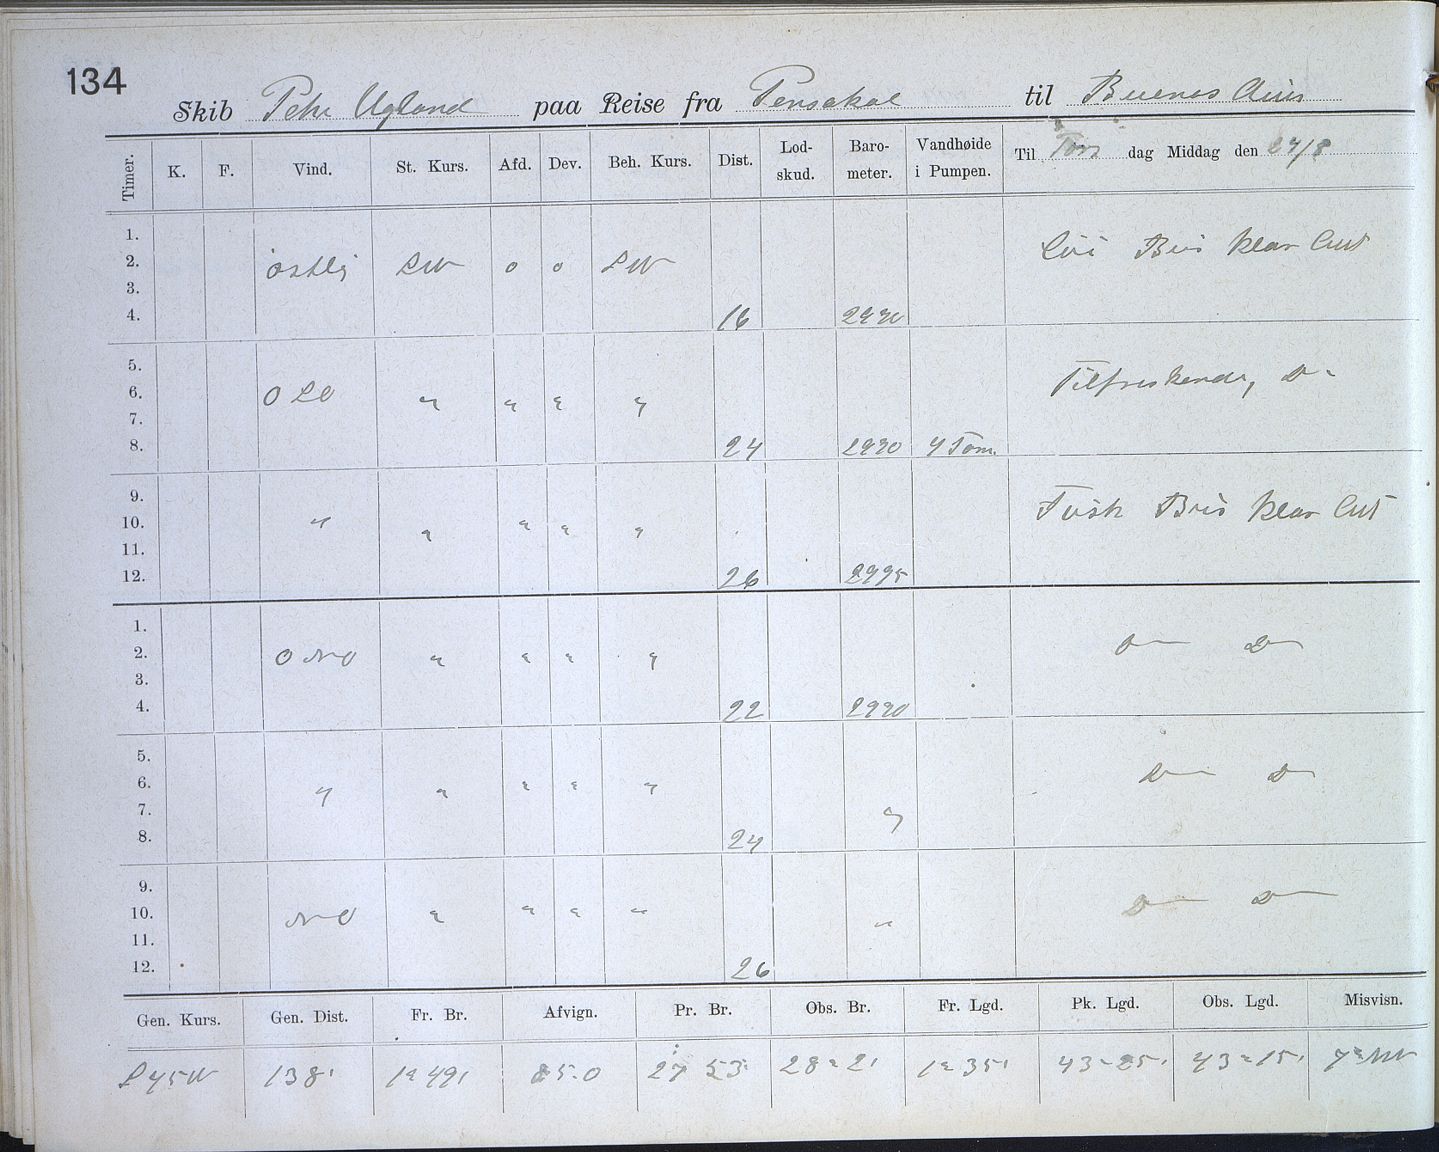 134
Skib Peter Ugland paa Reise fra Pensakol til Buenos Aires
Timer. K. F. Vind. St. Kurs. Afd. Dev. Beh. Kurs. Dist. Lod-skud. Baro-meter. Vandhøide i Pumpen. Til Tors dag Middag den 24/8
1.
2. östlig SW o o SW Löi Bris klar Luft
3.
4. 16 2990
5.
6. O SO " " " " Tilfriskende, Do
7.
8. 24 2990 4 Tom.
9.
10. " " " " " Frisk Bris klar Luft
11.
12. 26 2995
1.
2. O NO " " " " Do Do
3.
4. 22 2990
5.
6. " " " " " Do Do
7. "
8. 24
9.
10. NO " " " " " Do Do
11.
12. 26
Gen. Kurs. Gen. Dist. Fr. Br. Afvign. Pr. Br. Obs. Br. Fr. Lgd. Pk. Lgd. Obs. Lgd. Misvisn.
S 45 W 138' 1° 49' 85.0 27 53 28° 2' 1° 35' 43° 25' 43° 15' 7° NW